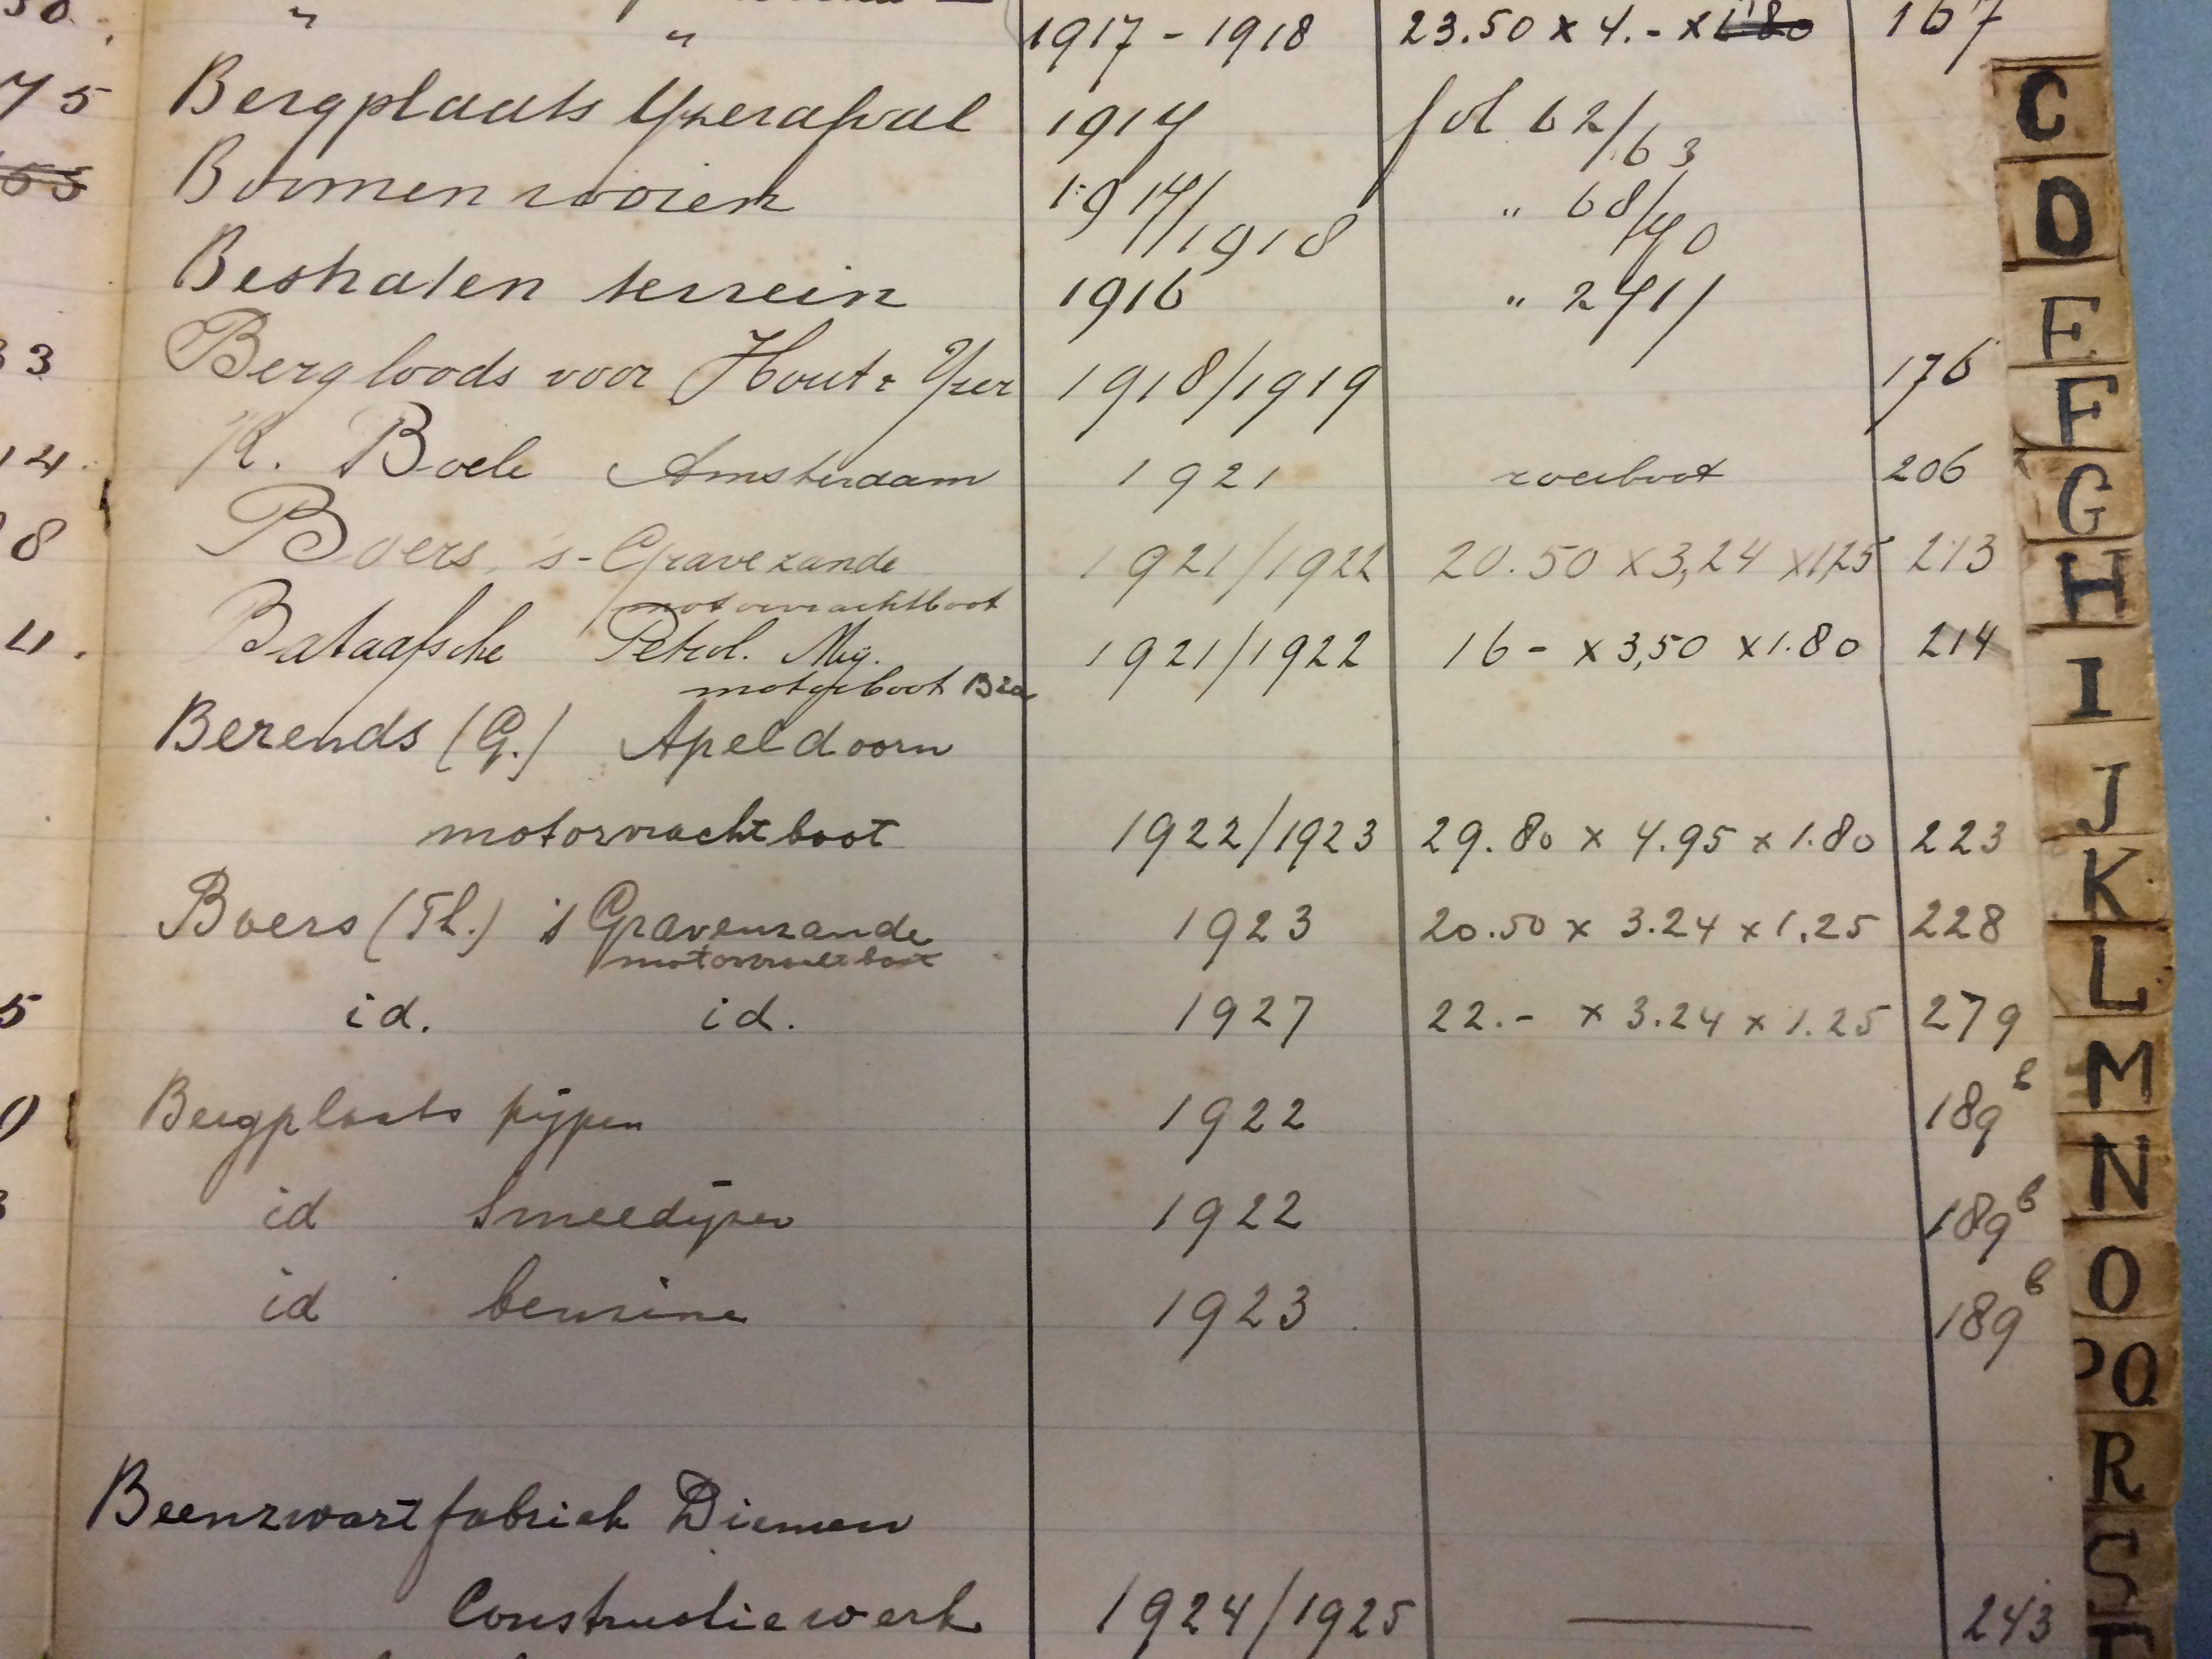 " " 1917 - 1918 23.50 x 4.- x 1.80 167
75 Bergplaats Yzerafval 1914 fol 62/63
65 Boomen rooien 1914/1918 " 68/70
Bestraten terrein 1916 " 241
33 Bergloods voor Hout & Yzer 1918/1919 176
14. K. Boele Amsterdam 1921 roeiboot 206
8 Boers, 's-Gravezande 1921/1922 20.50 x 3,24 x 1,25 213
motorvrachtboot
4. Bataafsche Petrol. Mij. 1921/1922 16 - x 3,50 x 1.80 214
motorboot
Berends (G.) Apeldoorn
motorvrachtboot 1922/1923 29.80 x 4.95 x 1.80 223
Boers (Th.) 's Gravenzande 1923 20.50 x 3.24 x 1.25 228
motorvrachtboot
5 id. id. 1927 22.- x 3.24 x 1.25 279
Bergplaats pijpen 1922 189b
id Smeedijzer 1922 189b
id benzine 1923 189b
Beenzwartfabriek Diemen
Constructiewerk 1924/1925 — 243
C
D
E
F
G
H
I
J
K
L
M
N
O
PQ
R
S
T